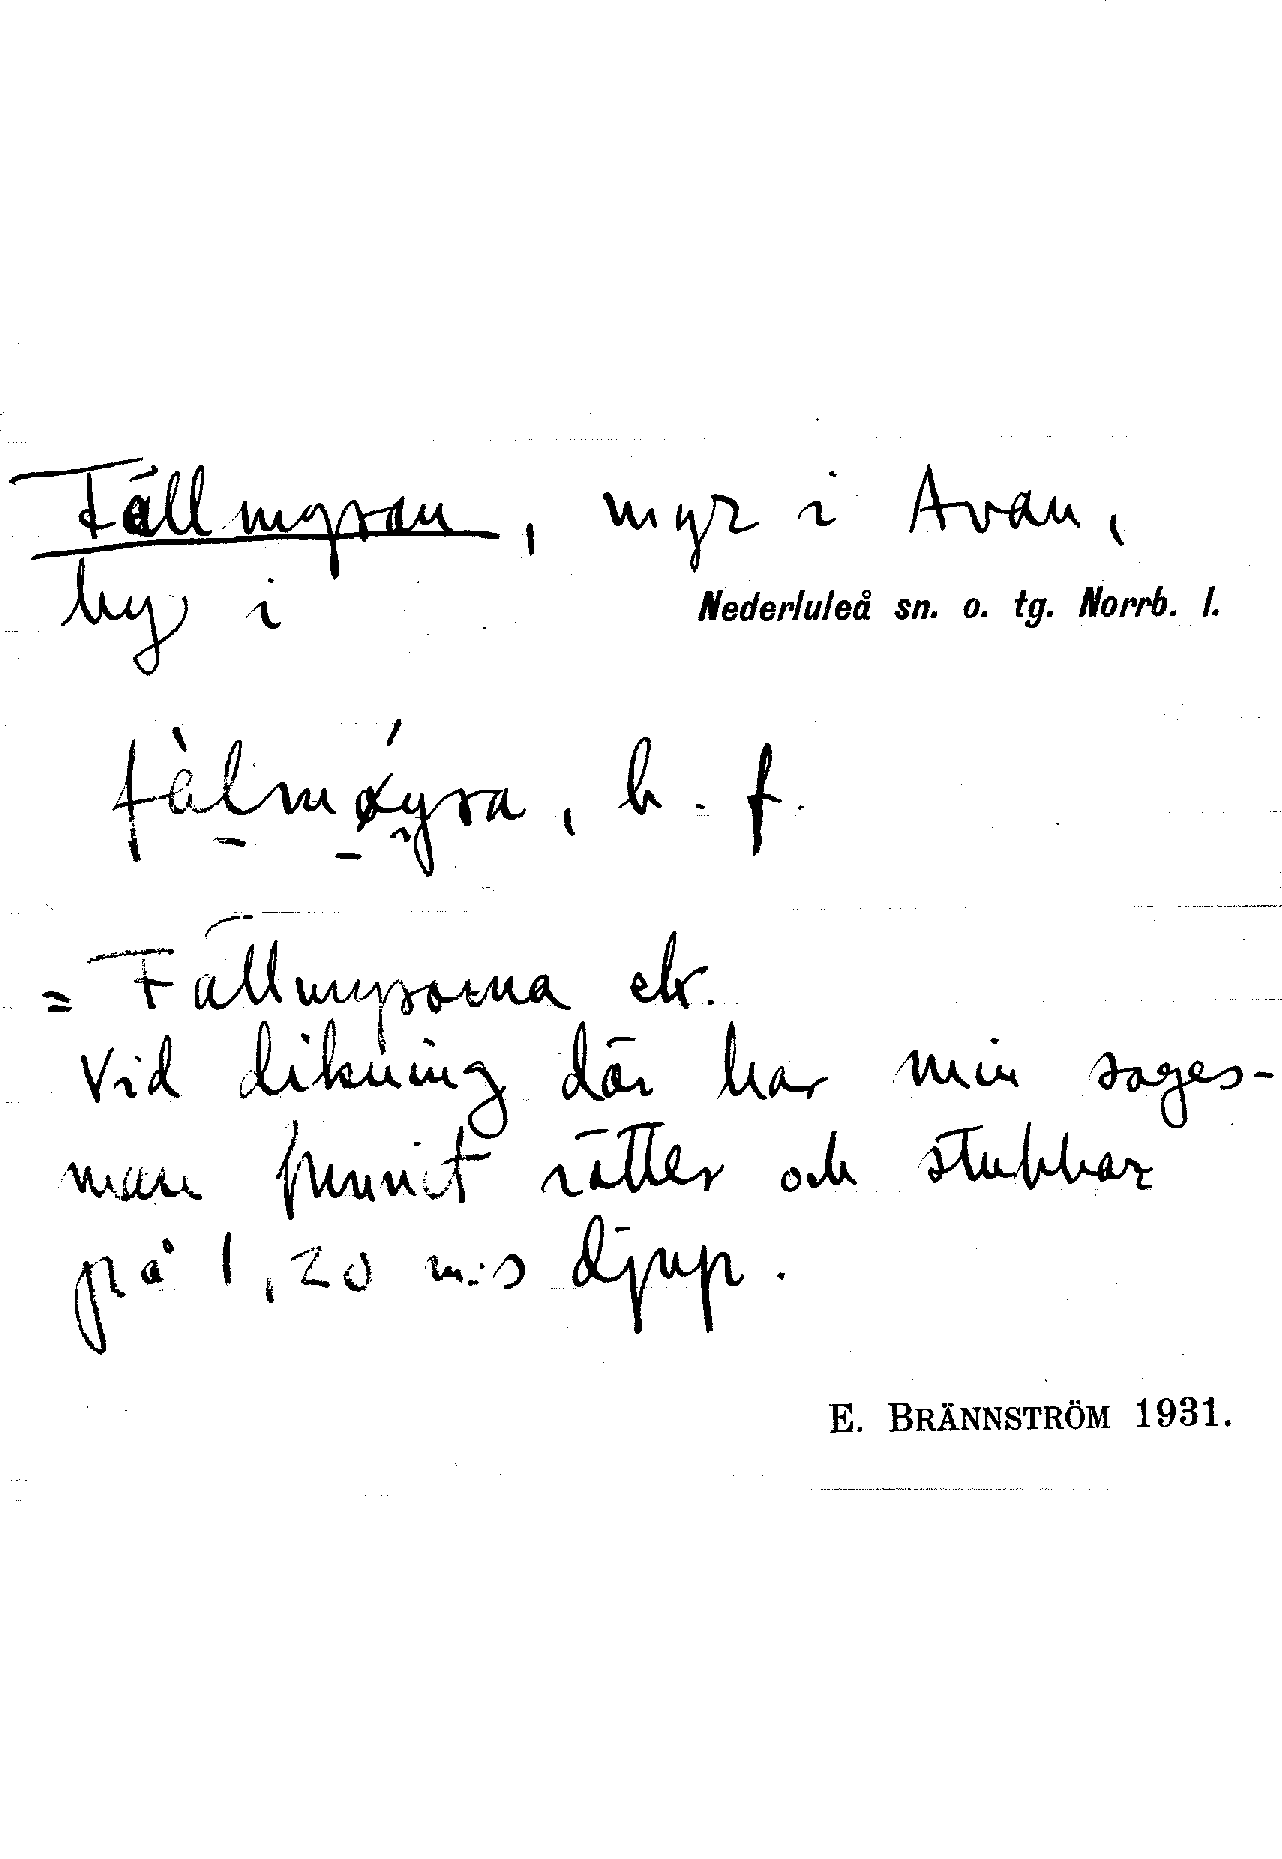 Fällmyran, myr i Avan,
by i Nederluleå sn. o. tg. Norrb. l.
b. f.
= Fällmyrorna ek.
Vid dikning där har min sages-
man funnit rötter och stubbar
på 1,20 m:s djup.
E. BRÄNNSTRÖM 1931.